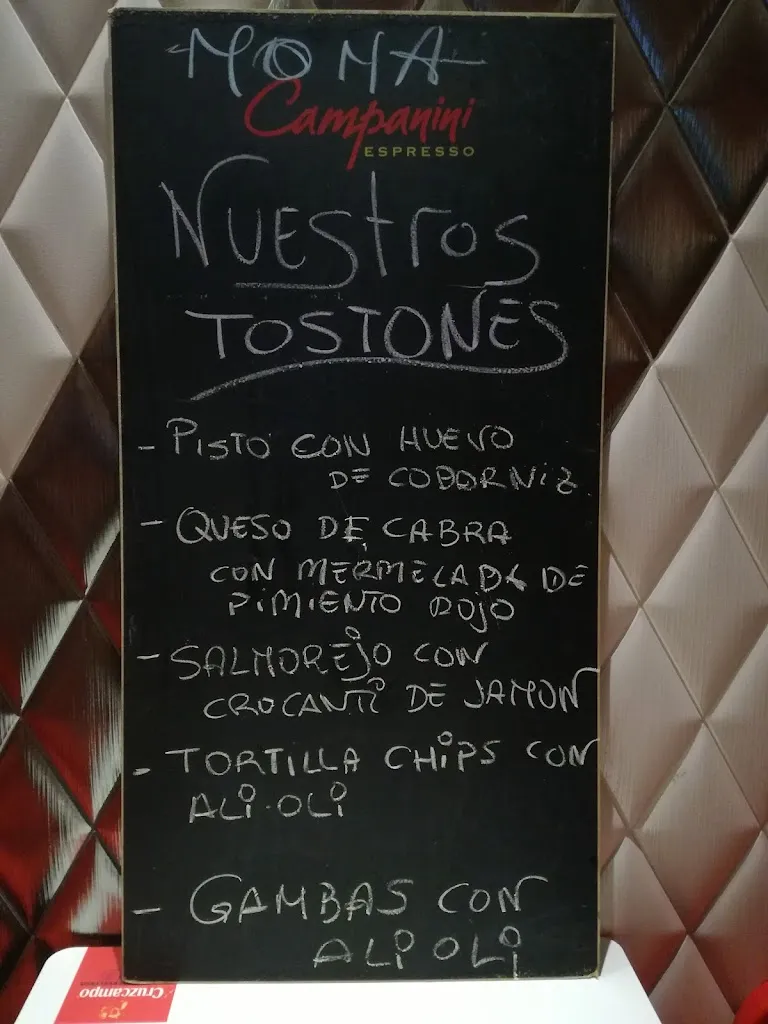 MOMA
Campanini
ESPRESSO
NUEStros
TOSTONES
- PISTO CON HUEVO
DE CODORNIZ
- QUESO DE CABRA
CON MERMELADA DE
PIMIENTO ROJO
- SALMOREJO CON
CROCANTi DE JAMON
- TORTILLA CHiPS CON
ALi-OLi
- GAMBAS CON
ALi OLi
Cruzcampo